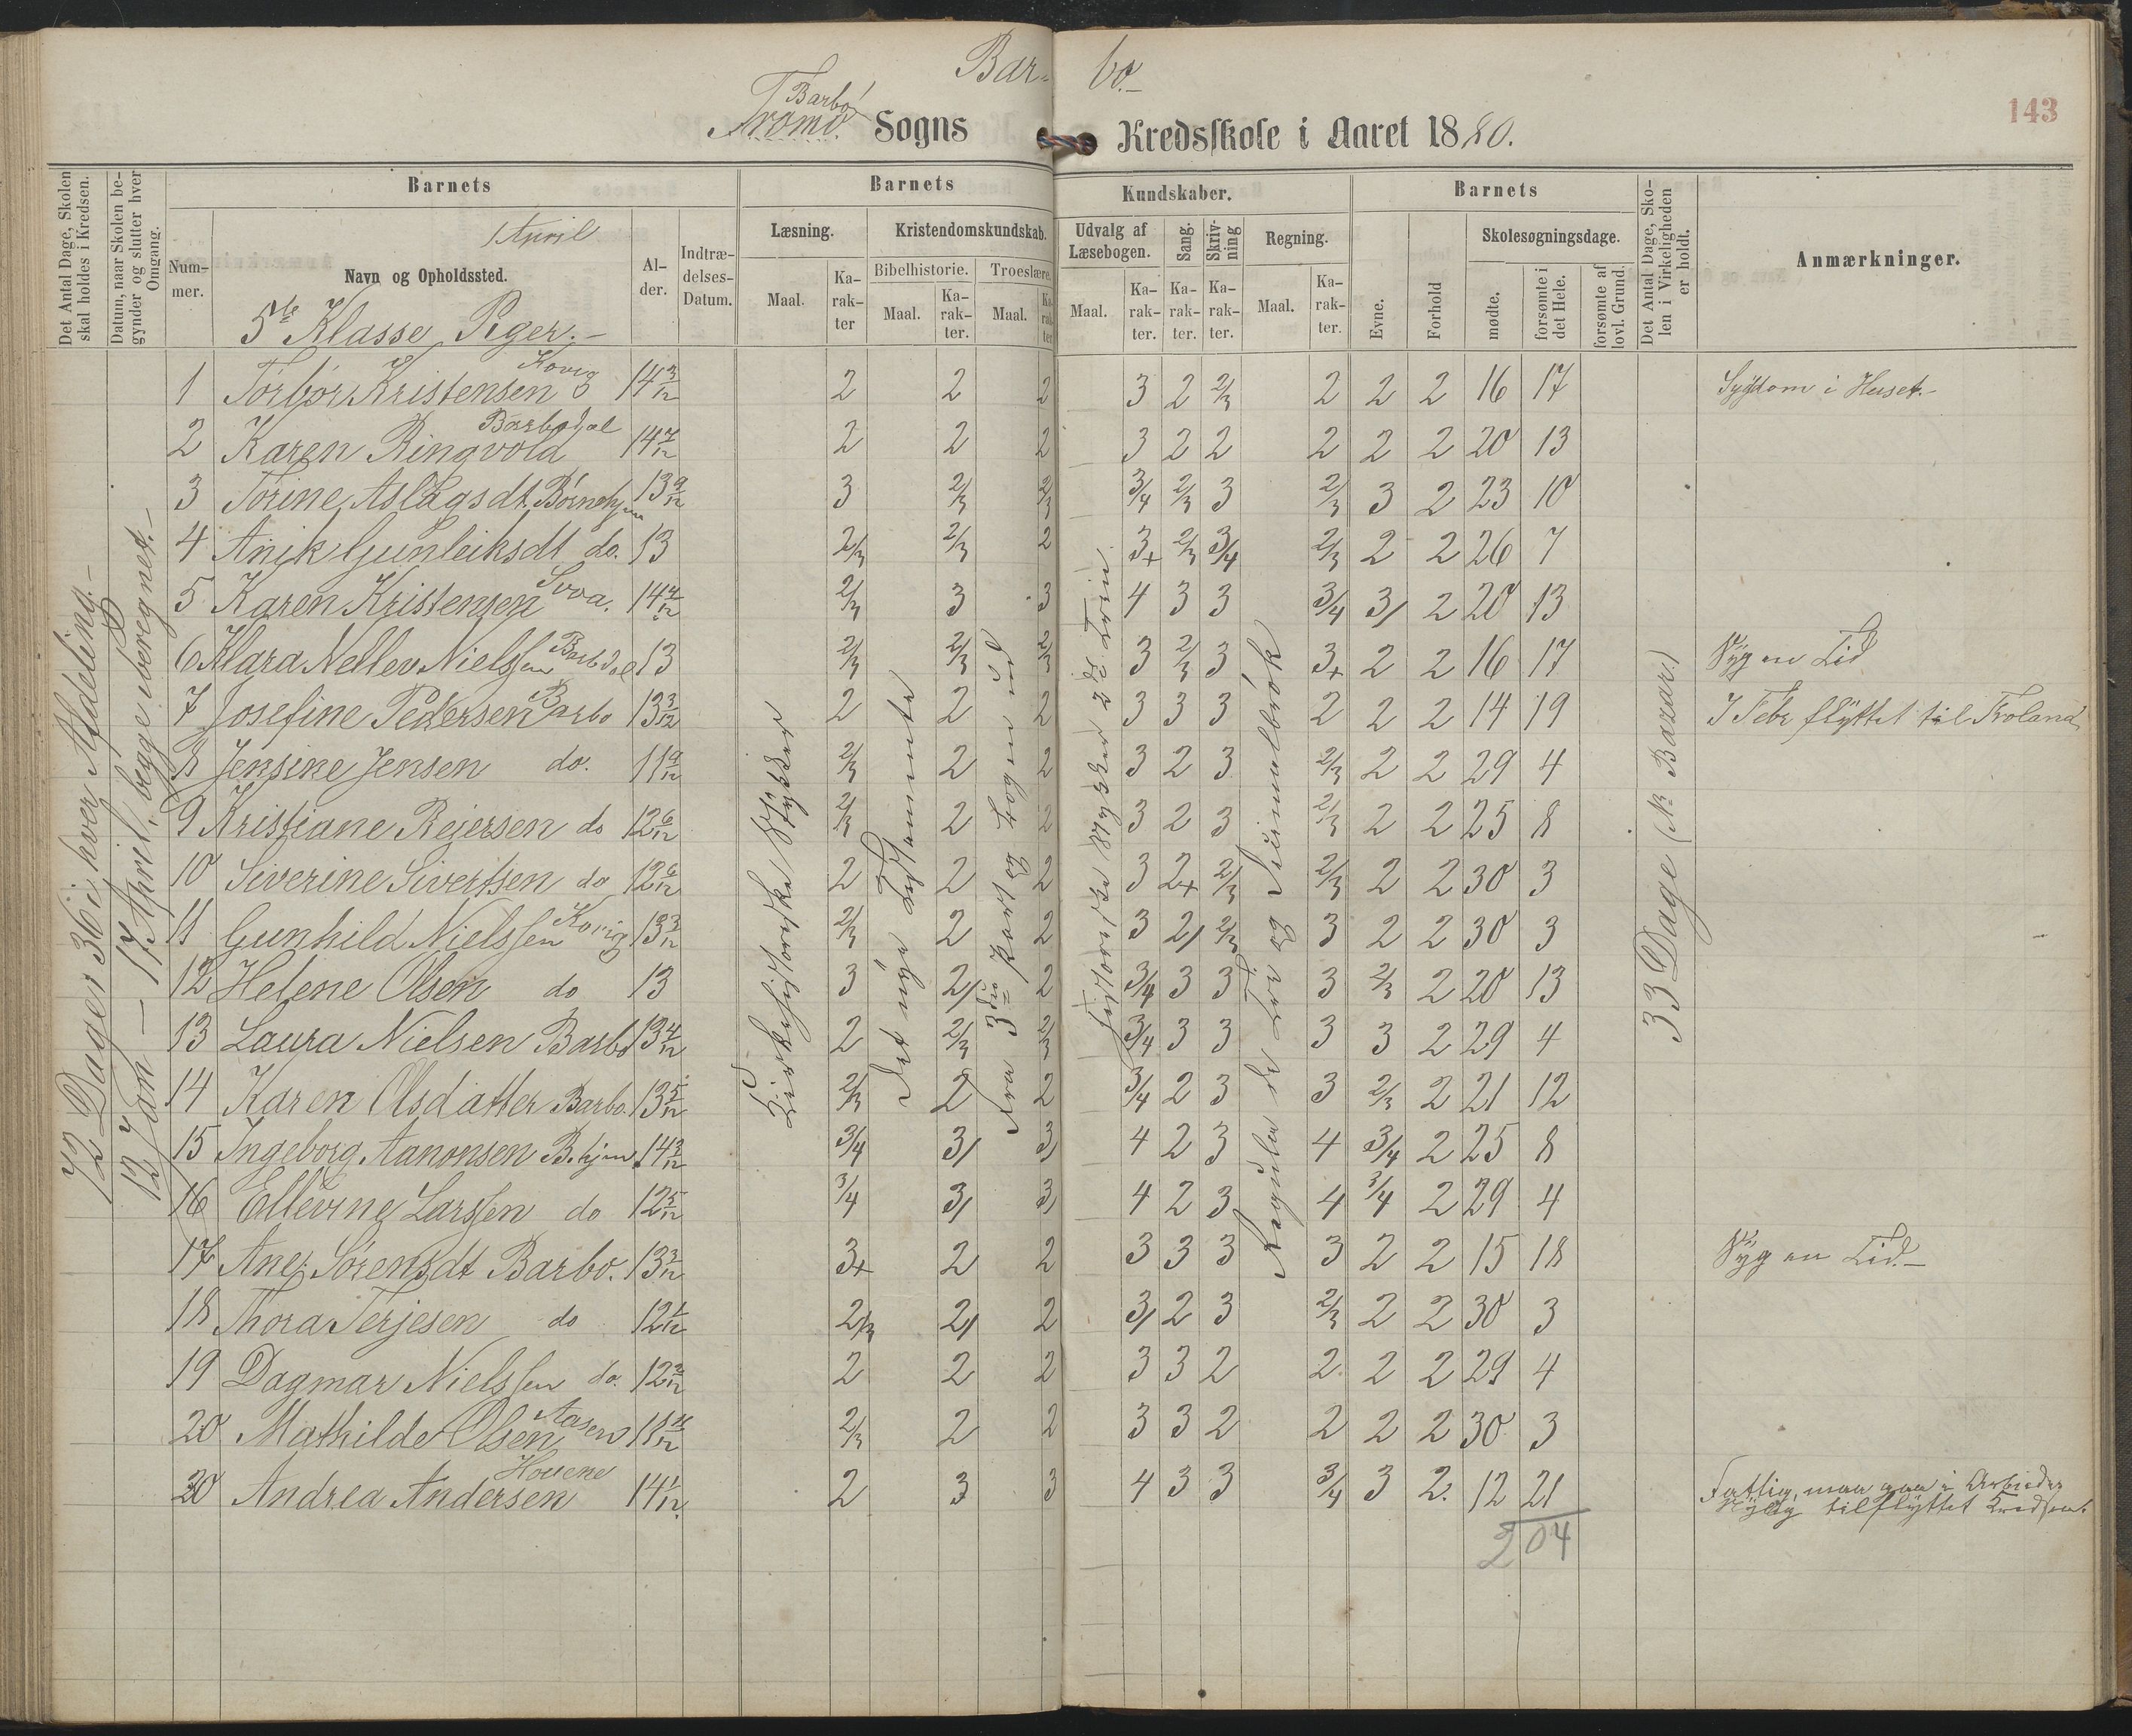 Bar- bo.
143
Barbo
Tromø. Sogns Kredsskole i Aaret 1880.
Det Antal Dage, Skolen skal holdes i Kredsen.
Datum, naar Skolen begynder og slutter hver Omgang.
Barnets
Barnets
Kundskaber.
Barnets
Det Antal Dage, Skolen i Virkeligheden er holdt.
Anmærkninger.
Nummer.
Navn og Opholdssted.
1 April
Alder.
Indtrædelses-Datum.
Læsning.
Kristendomskundskab.
Bibelhistorie. Troeslære.
Maal. Karakter Maal. Karakter. Maal. Karakter
Udvalg af Læsebogen. Sang. Skrivning Regning.
Maal. Karakter. Karakter. Karakter. Maal. Karakter.
Evne. Forhold
Skolesøgningsdage.
mødte. forsømte i det Hele. forsømte af lovl. Grund.
5te Klasse Piger.-
72 Dage: 36 i hver Afdeling.-
12 Jan - 17 April, begge iberegnet.-
Kirkehistoriske Stykker
Det nye Testamente
Fra 3die Part og Bogen ud
Historiske Stykker 2det Trin
Regula de Tri og Decimalbrøk
33 Dage (Bazar)
1 Torbor Kristensen Kovig 14 3/12 2 2 2 3 2 2/3 2 2 2 16 17 Sygdom i Huset.-
2 Karen Ringvold Barbodal 14 7/12 2 2 2 3 2 2 2 2 2 20 13
3 Torine Aslagsdt. Børnehjem 13 9/12 3 2/3 2/3 3/4 2/3 3 2/3 3 2 23 10
4 Anik Gunleiksdt do. 13 2/3 2/3 2 3+ 2/3 3/4 2/3 2 2 26 7
5 Karen Kristensen 14 4/12 2/3 3 3 4 3 3 3/4 3/ 2 20 13
6 Klara Nellev Nielssen Barbdal 13 2/3 2/3 2/3 3 2/3 3 3+ 2 2 16 17 Syg en Tid
7 Josefine Pedersen Barbo 13 3/12 2 2 2 3 3 3 2 2 2 14 19 I Febr flyttet til Froland
8 Jensine Jensen do. 11 9/12 2/3 2 2 3 2 3 2/3 2 2 29 4
9 Kristiane Reiersen do 12 6/12 2/3 2 2 3 2 3 2/3 2 2 25 8
10 Siverine Sivertsen do 12 6/12 2 2 2 3 2+ 2/3 2/3 2 2 30 3
11 Gunhild Nielssen Kovig 13 3/12 2/3 2 2 3 2/ 2/3 3 2 2 30 3
12 Helene Olsen do 13 3 2/ 2 3/4 3 3 3 2/3 2 20 13
13 Laura Nielsen Barbo 13 4/12 2 2/3 2/3 3/4 3 3 3 3 2 29 4
14 Karen Olsdatter Barbo. 13 5/12 2/3 2 2 3/4 2 3 3 2/3 2 21 12
15 Ingeborg Aanonsen B.hjem. 14 3/12 3/4 3/ 3/ 4 2 3 4 3/4 2 25 8
16 Ellevine Larssen do 12 5/12 3/4 3/ 3/ 4 2 3 4 3/4 2 29 4
17 Ane Sørensdt Barbo. 13 3/12 3+ 2 2 3 3 3 3 2 2 15 18 Syg en Tid.-
18 Thora Terjesen do 12 1/12 2/3 2/ 2 3/ 2 3 2/3 2 2 30 3
19 Dagmar Nielssen do. 12 2/12 2 2 2 3 3 2 2 2 2 29 4
20 Mathilde Olsen Aasen 11 11/12 2/3 2 2 3 3 2 2 2 2 30 3
20 Andrea Andersen Hovene 14 1/12. 2 3 3 4 3 3 3/4 3 2. 12 21 Fattig, maa gaa i Arbeide
tilflyttet Kredsen.
204